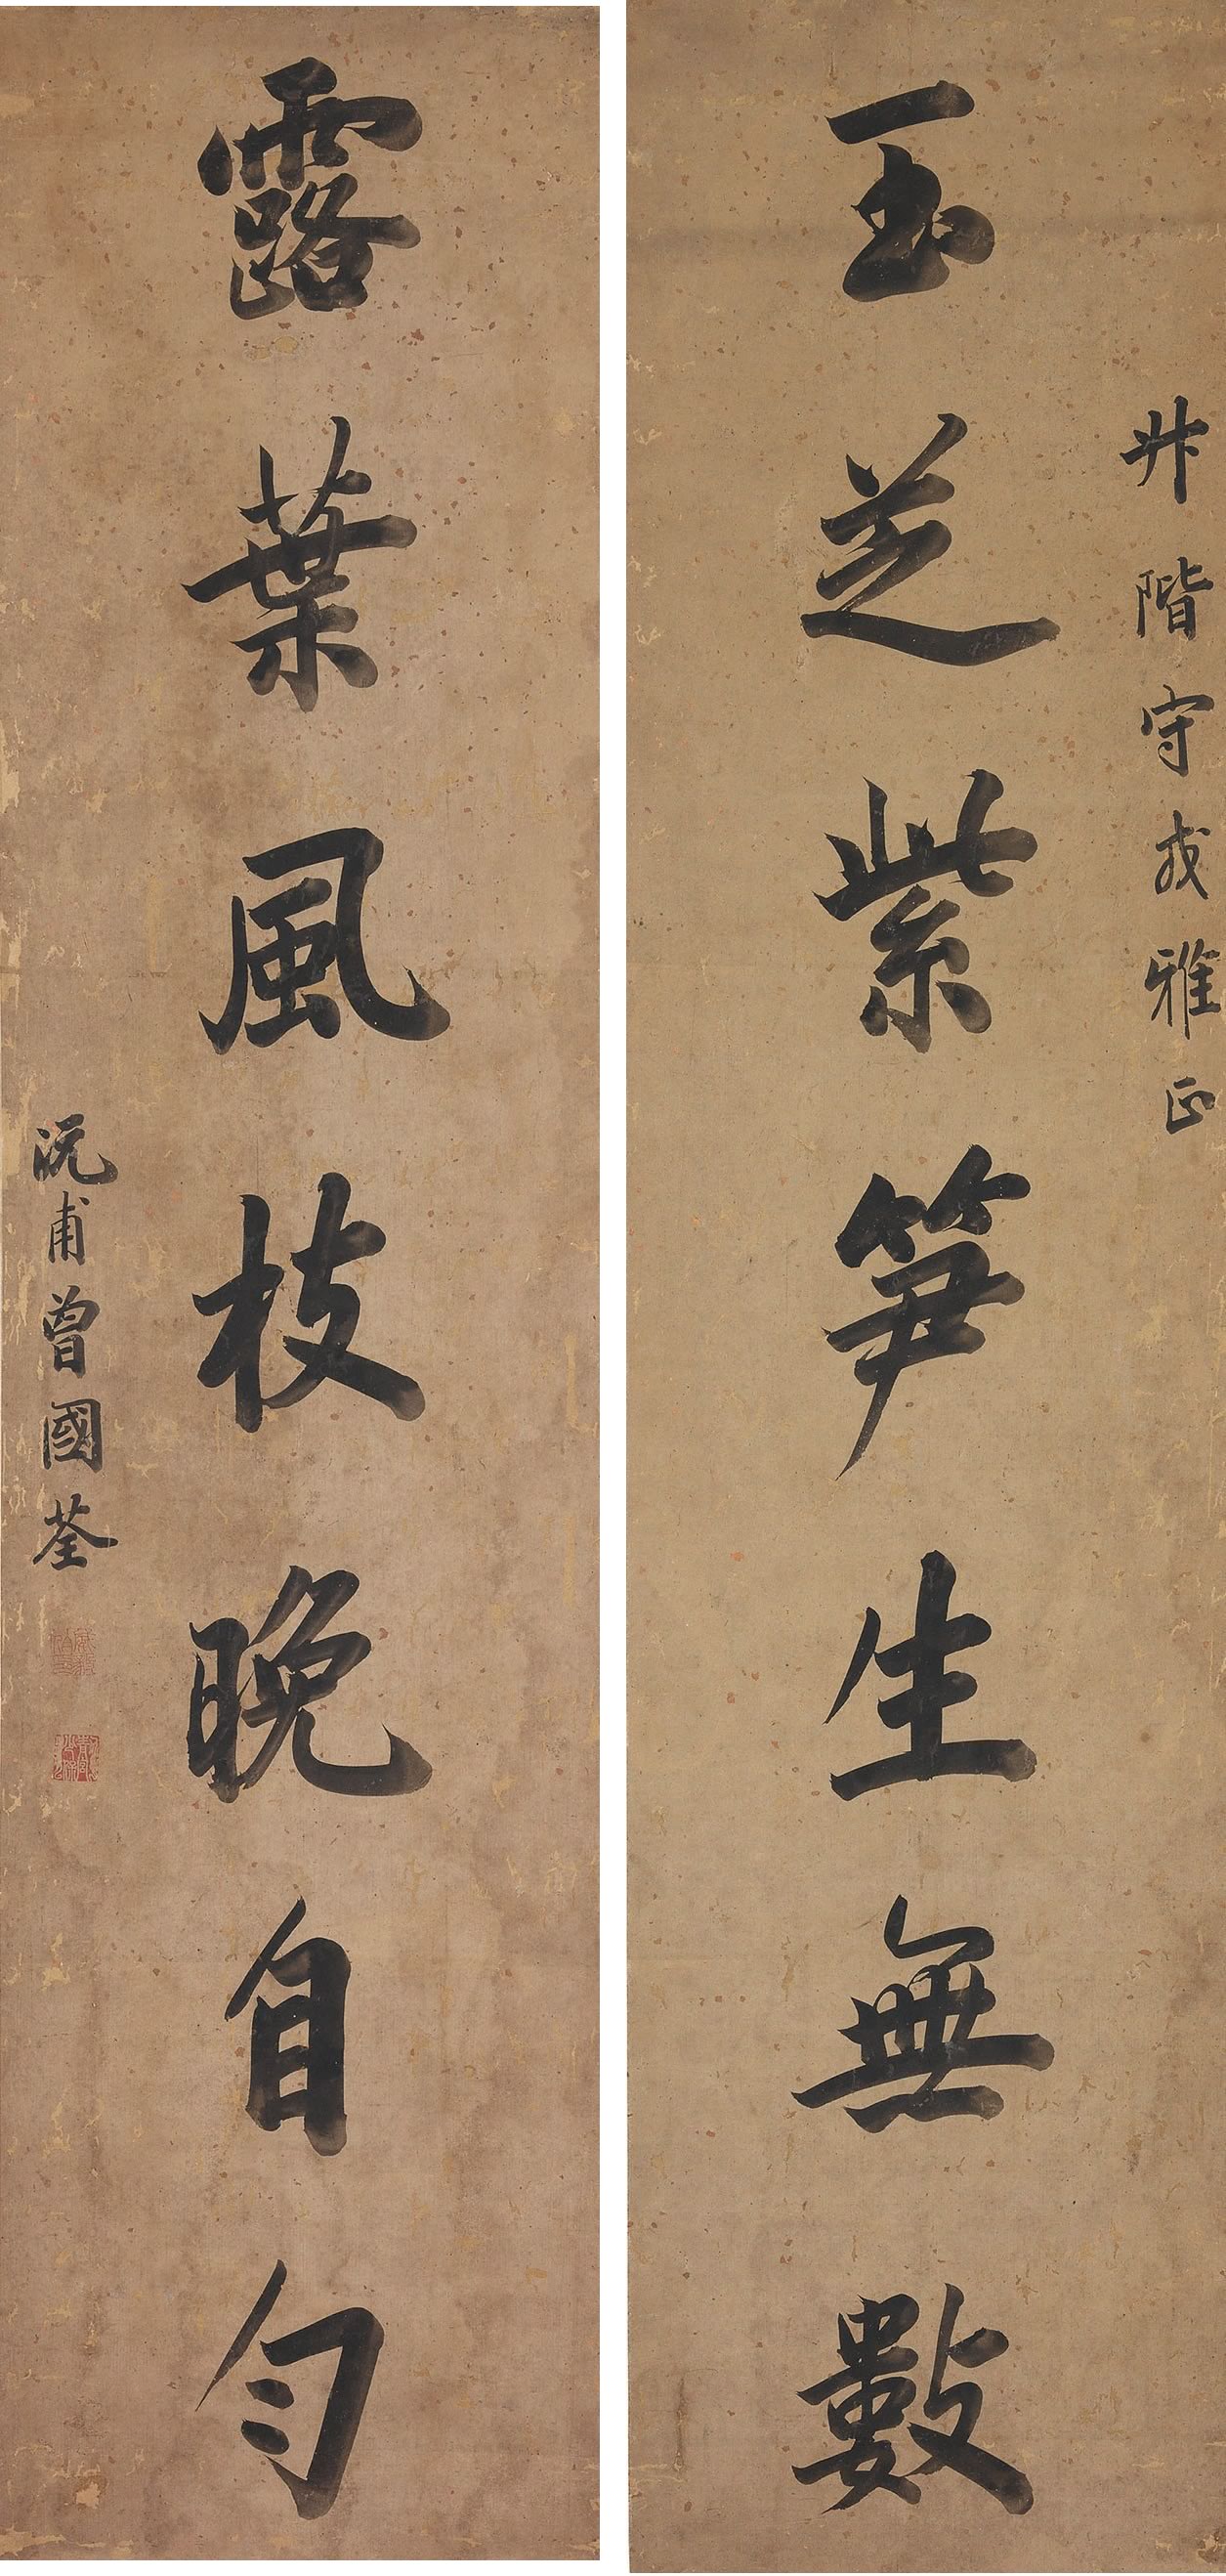 玉芝紫笋生無數
升階守戎雅正
露葉風枝晚自勻
沅甫曾國荃